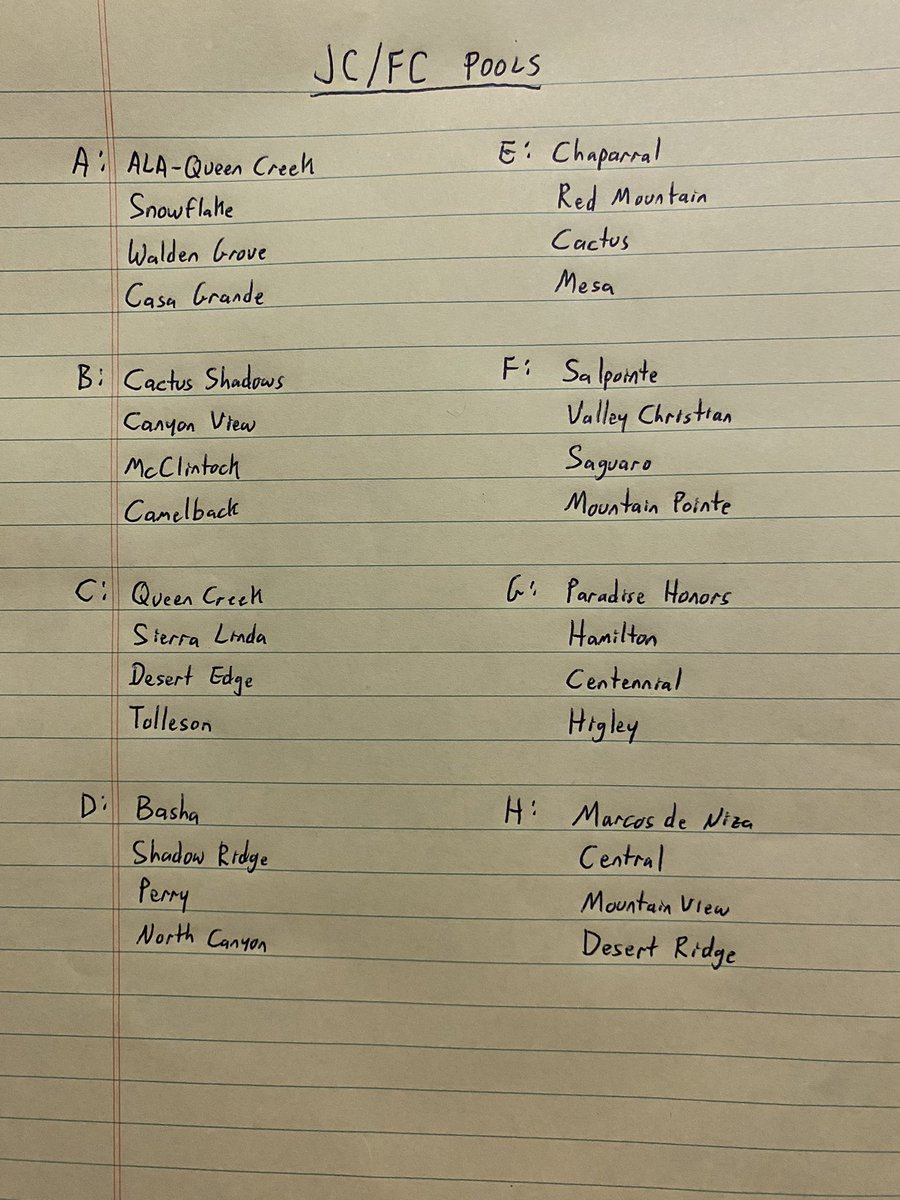 JC/FC POOLS
A: ALA-Queen Creek
Snowflake
Walden Grove
Casa Grande
B: Cactus Shadows
Canyon View
McClintock
Camelback
C: Queen Creek
Sierra Linda
Desert Edge
Tolleson
D: Basha
Shadow Ridge
Perry
North Canyon
E: Chaparral
Red Mountain
Cactus
Mesa
F: Salpointe
Valley Christian
Saguaro
Mountain Pointe
G: Paradise Honors
Hamilton
Centennial
Higley
H: Marcos de Niza
Central
Mountain View
Desert Ridge